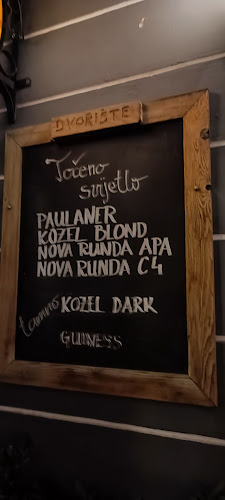 DVORIŠTE
Točeno
svijetlo
PAULANER
KOZEL BLOND
NOVA RUNDA APA
NOVA RUNDA C4
tamno KOZEL DARK
GUINESS